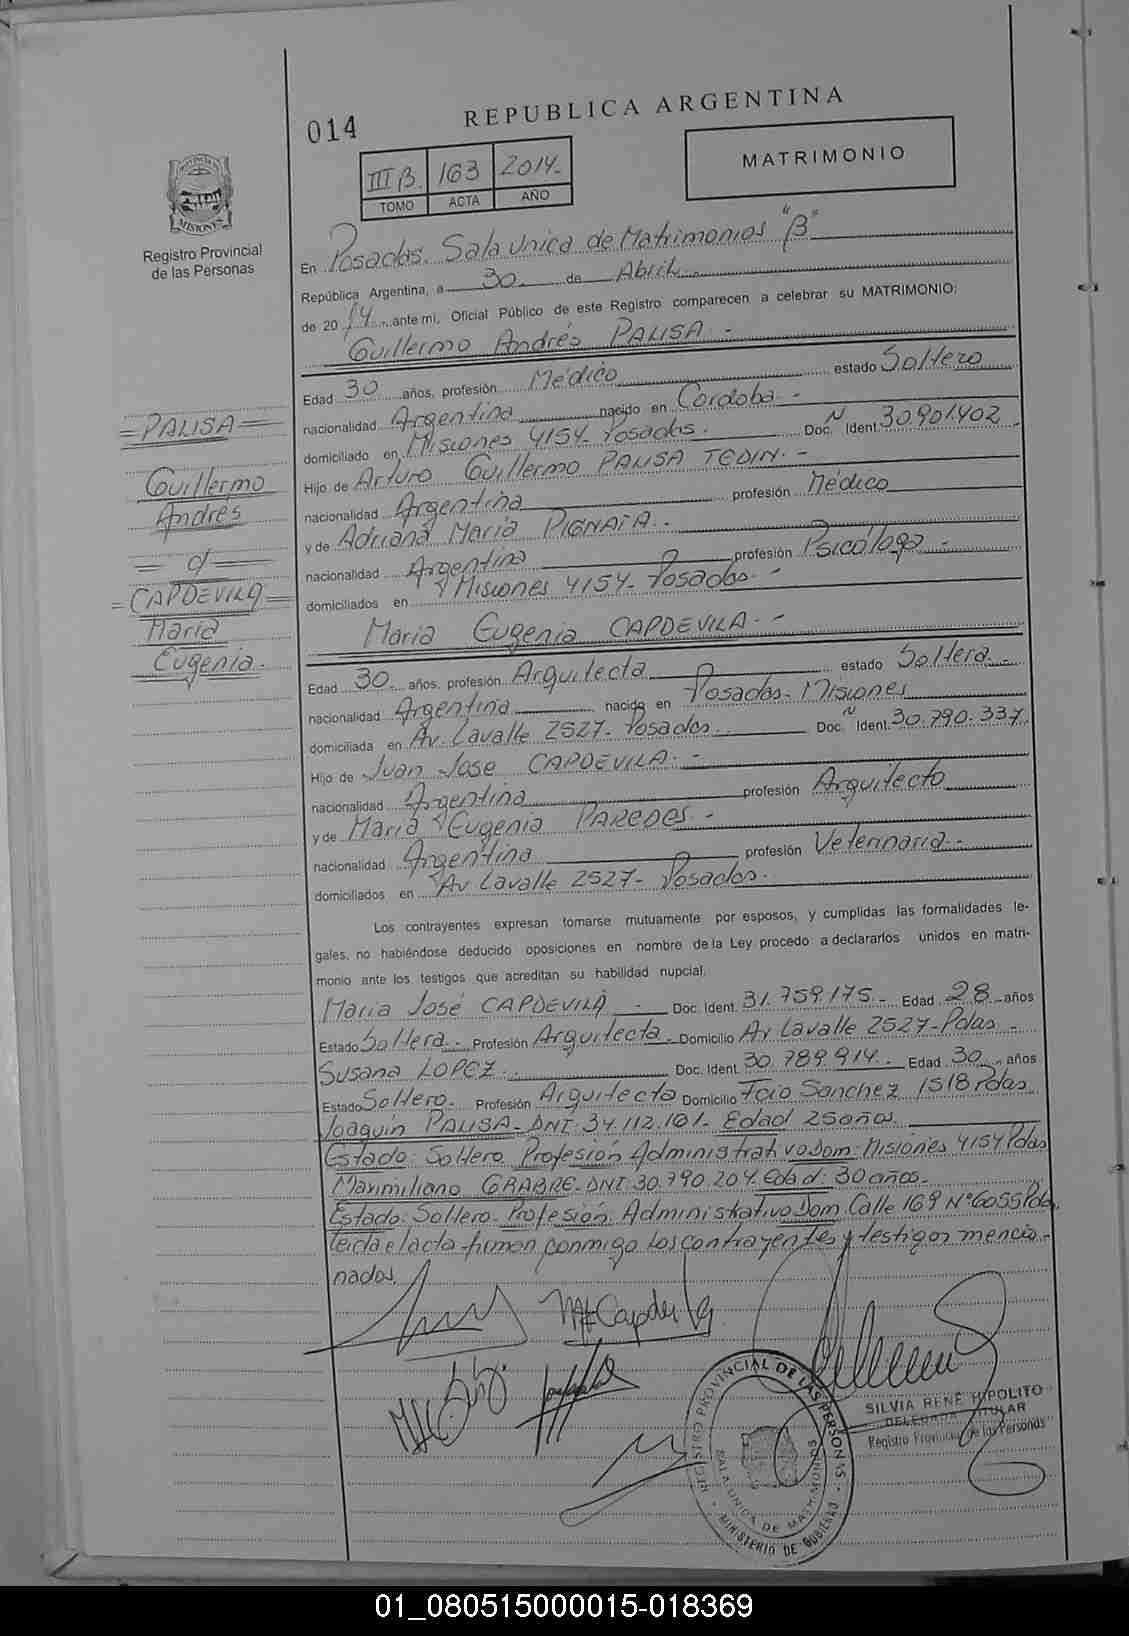 REPUBLICA ARGENTINA
014
III B. 163 2014.-
TOMO ACTA AÑO
MATRIMONIO
PROVINCIA DE
MISIONES
Registro Provincial
de las Personas
En Posadas. Sala Unica de Matrimonios "B"
República Argentina, a 30. de Abril.
de 20 14 ante mi, Oficial Público de este Registro comparecen a celebrar su MATRIMONIO:
Guillermo Andrés PALISA.-
Edad 30 años, profesión Médico estado Soltero
nacionalidad Argentina nacido en Cordoba.-
domiciliado en Misiones 4154- Posadas. Doc. N Ident. 30.901.402
Hijo de Arturo Guillermo PALISA TEDIN.-
nacionalidad Argentina profesión Médico
y de Adriana Maria PIGNATA.-
nacionalidad Argentina profesión Psicóloga.-
domiciliados en Misiones 4154- Posadas.-
Maria Eugenia CAPDEVILA.-
Edad 30. años, profesión Arquitecta estado Soltera.-
nacionalidad Argentina nacida en Posadas- Misiones
domiciliada en Av. Lavalle 2527- Posadas. Doc. N Ident. 30.790.337
Hijo de Juan Jose CAPDEVILA.-
nacionalidad Argentina profesión Arquitecto
y de Maria Eugenia PAREDES.-
nacionalidad Argentina profesión Veterinaria.-
domiciliados en Av Lavalle 2527- Posadas.
Los contrayentes expresan tomarse mutuamente por esposos, y cumplidas las formalidades le-
gales, no habiéndose deducido oposiciones en nombre de la Ley procedo a declararlos unidos en matri-
monio ante los testigos que acreditan su habilidad nupcial.
Maria José CAPDEVILA.- Doc. Ident. 31.759.175.- Edad 28 años
Estado Soltera.- Profesión Arquitecta. Domicilio Av Lavalle 2527-Pdas.-
Susana LOPEZ. Doc. Ident. 30.789.914.- Edad 30 años
Estado Soltero. Profesión Arquitecta Domicilio Fcio Sanchez 1518 Pdas
Joaquín PALISA- DNI. 34.112.161- Edad 25 años.
Estado: Soltero. Profesión Administrativo Dom: Misiones 4154 Pdas
Maximiliano GRABRE- DNI. 30.790.204. Edad: 30 años.-
Estado: Soltero. Profesión: Administrativo Dom. Calle 169 N° 6055 Pdas
leida el acta firman conmigo los contrayentes y testigos mencio-
nados.
=PALISA=
Guillermo
Andrés
= c/ =
=CAPDEVILA=
Maria
Eugenia.-
MECapdevila
SILVIA RENÉ HIPOLITO
DELEGADA TITULAR
Registro Provincial de las Personas
REGISTRO PROVINCIAL DE LAS PERSONAS
SALA UNICA DE MATRIMONIOS
MINISTERIO DE GOBIERNO
01_080515000015-018369